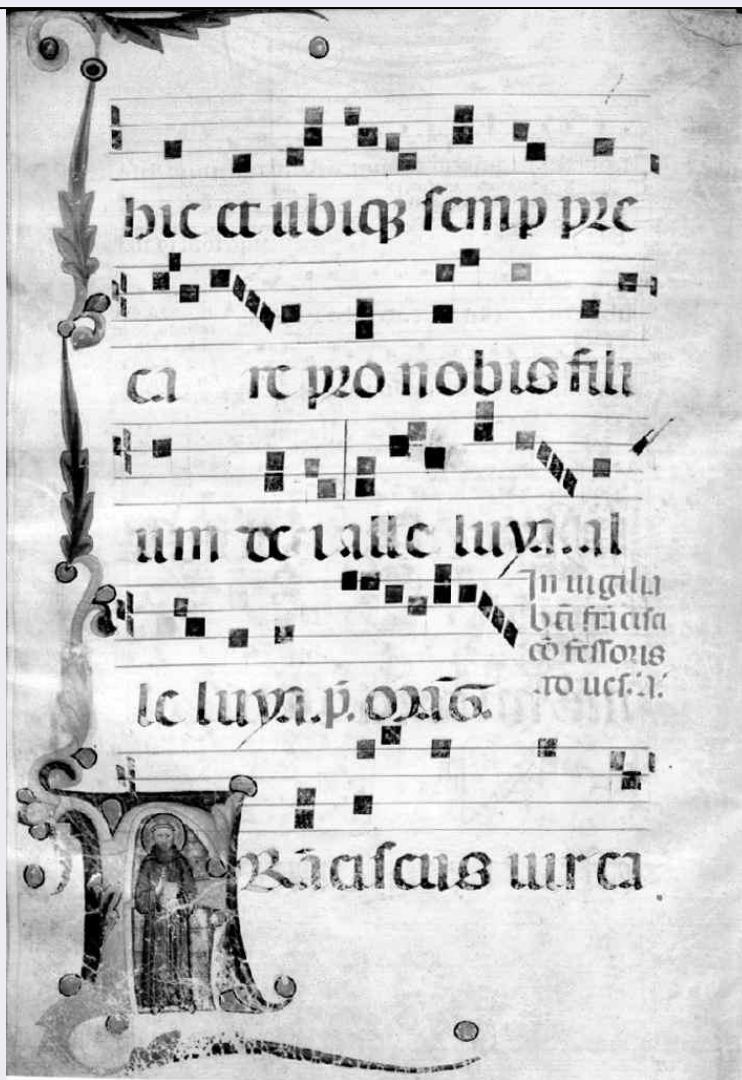 hic et ubiqꝫ semp pre
ca re pro nobis fili
um dei alle luya. al
le luya. p̄. oraĊ.
In uigilia
bā frācisci
cōfessoris
ad ues. a.
FRāciscus uir ca